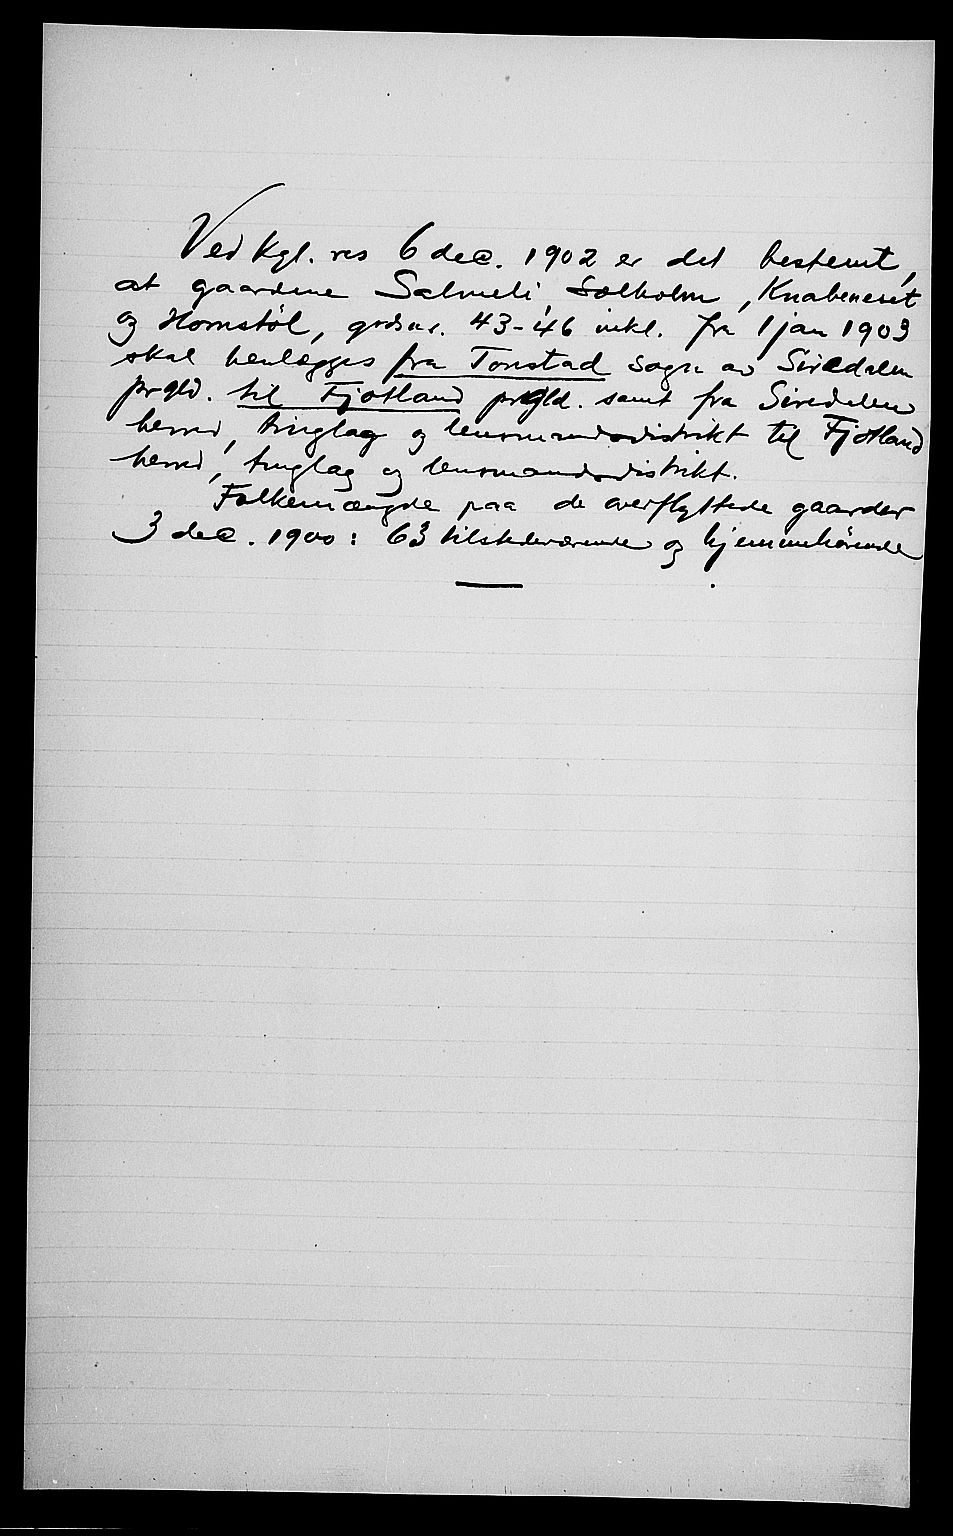 Ved kgl. res 6 dec. 1902 er det bestemt,
at gaardene Salmeli, Solholm, Knabeneset
og Homstøl, gaardsnr. 43-46 inkl. fra 1 jan 1903
skal henlægges fra Tonstad sogn av Siredalen
prgld. til Fjotland prgld. samt fra Siredalens
herred, tinglag og lensmandsdistrikt til Fjotland
herred, tinglag og lensmandsdistrikt.
Folkemængde paa de overflyttede gaarder
3 dec. 1900: 63 tilstedeværende og hjemmehørende